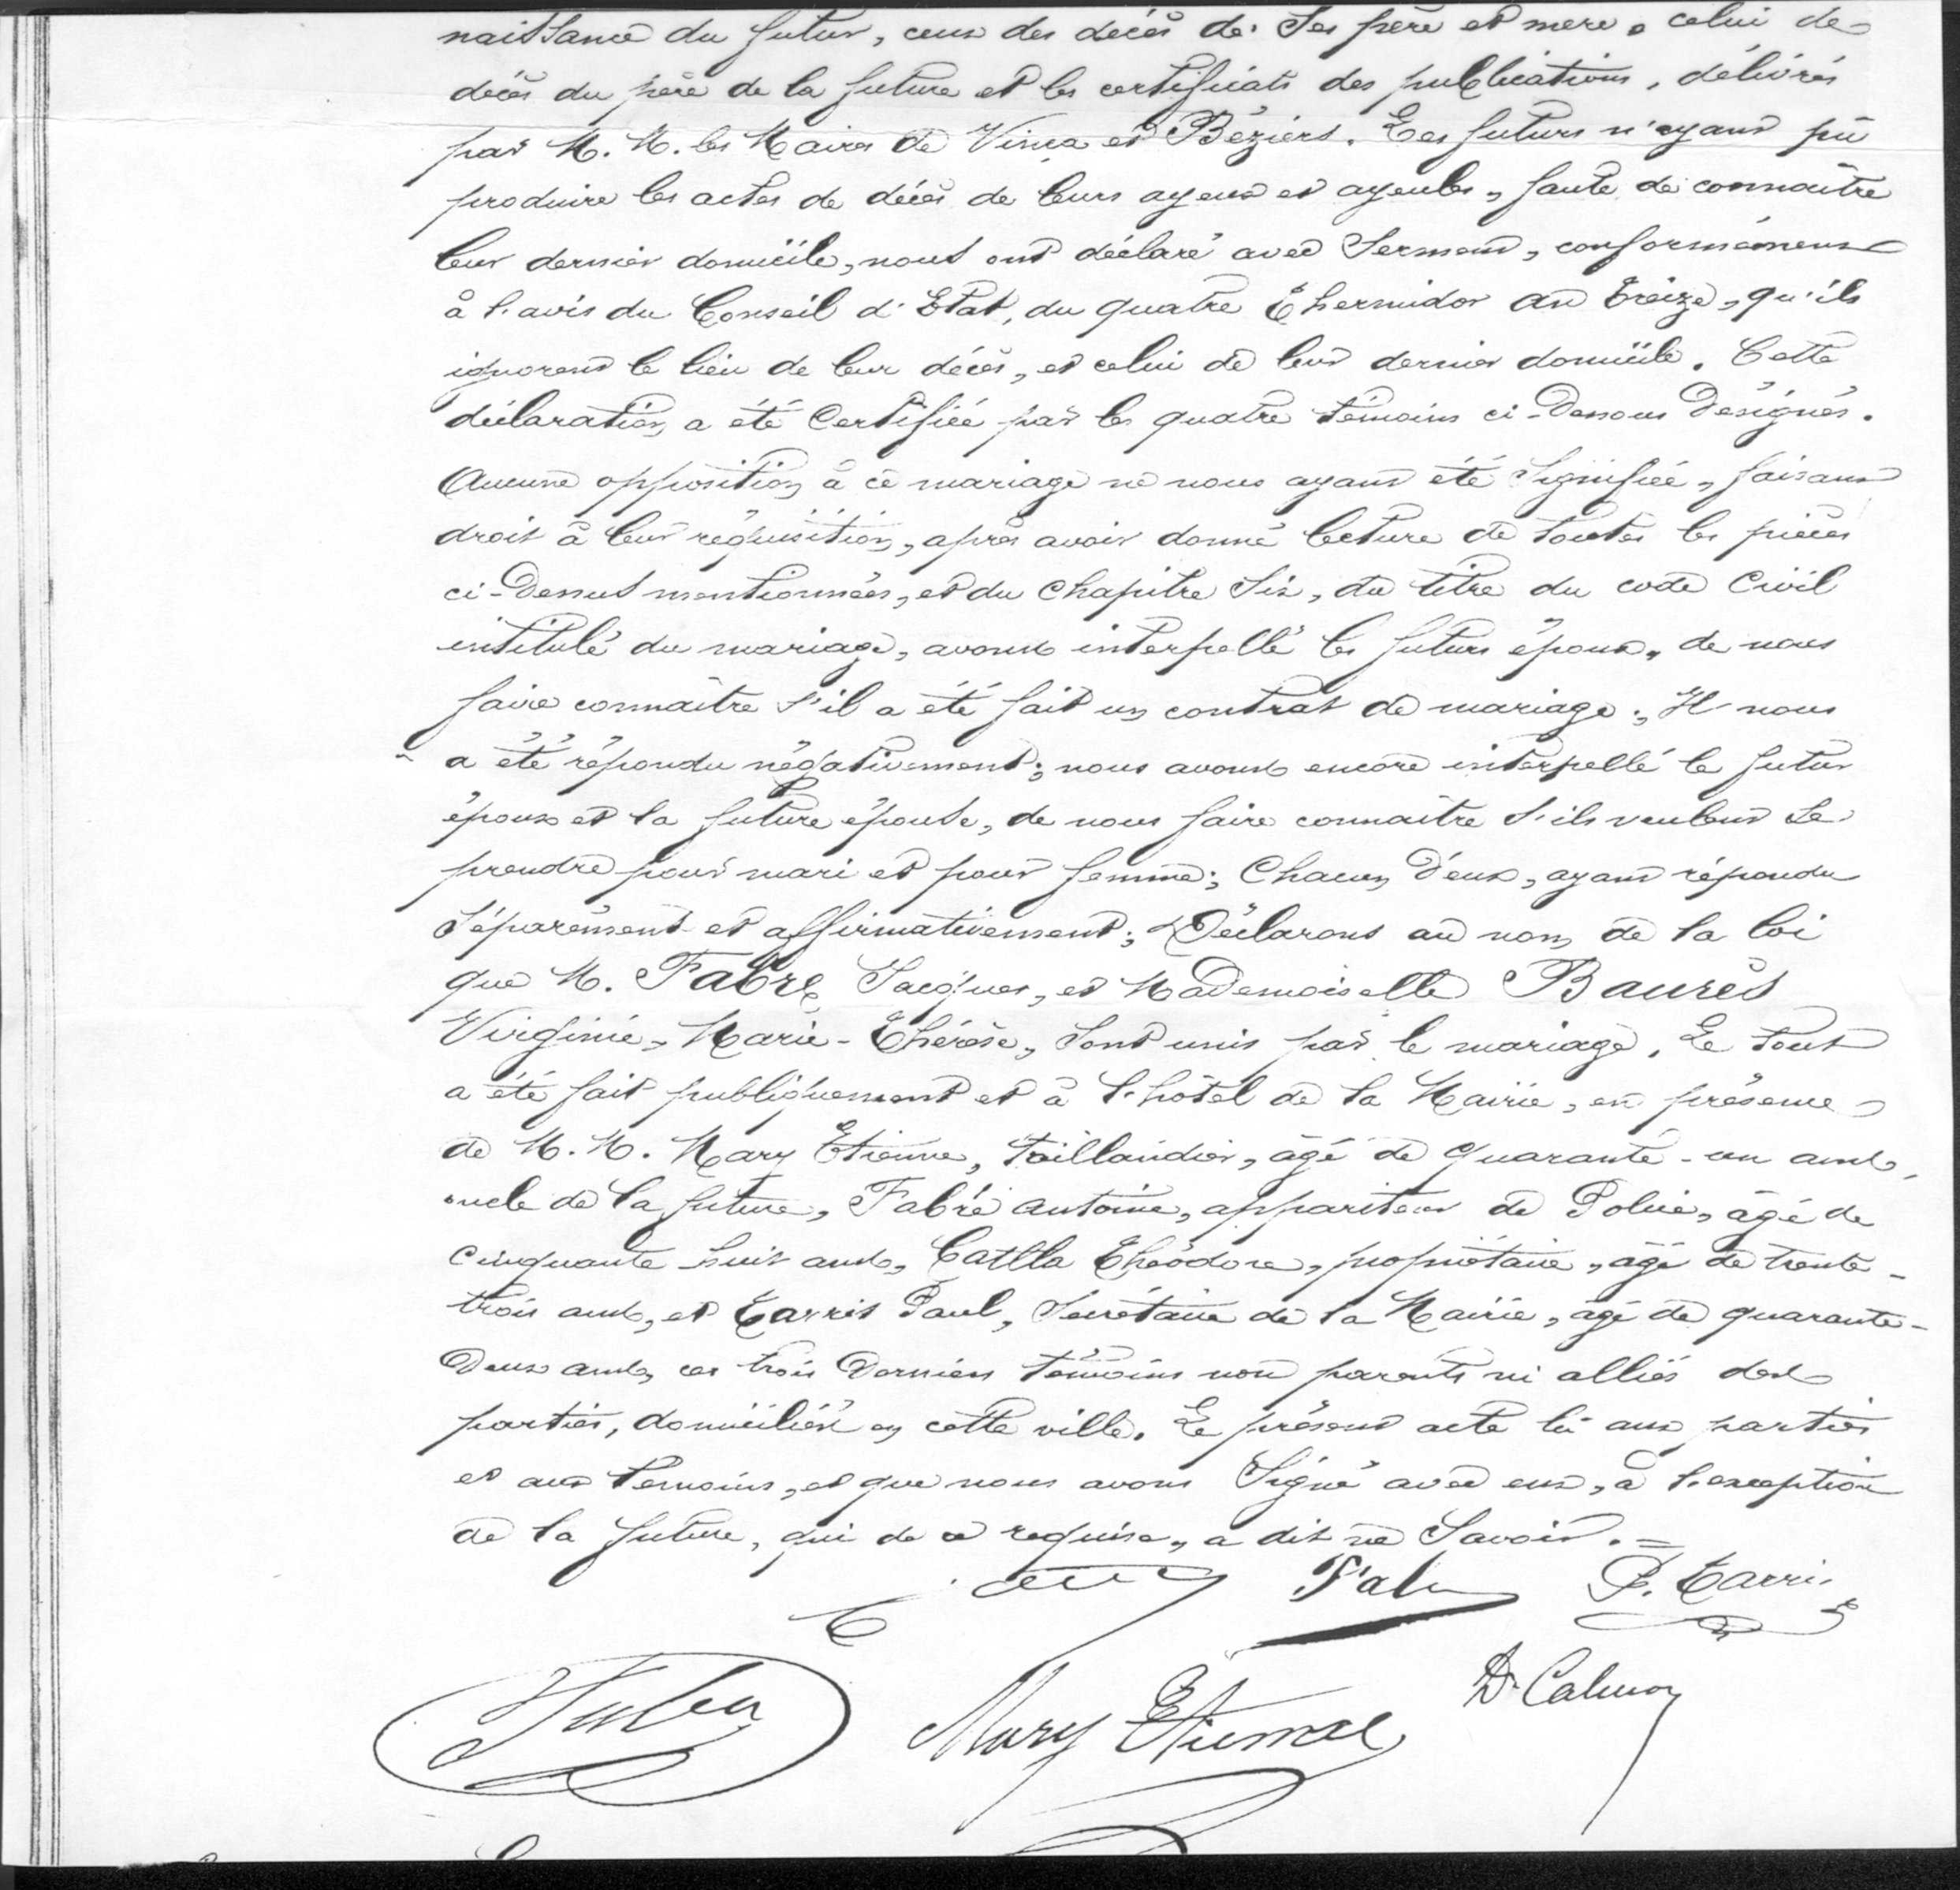 naissance du futur, ceux des décès de ses père et mère, celui de
décès du père de la future et les certificats des publications, délivrés
par M. M. les Maires de Vinça et Béziers. Les futurs n'ayant pû
produire les actes de décès de leurs ayeux et ayeules, faute de connaître
leur dernier domicile, nous ont déclaré avec Serment, conformément
à l'avis du Conseil d'Etat, du quatre Thermidor an Treize, qu'ils
ignorent le lieu de leur décès, et celui de leur dernier domicile. Cette
déclaration a été Certifiée par les quatre témoins ci-Dessous Désignés.
Aucune opposition à ce mariage ne nous ayant été Signifiée, faisant
droit à leur réquisition, après avoir donné lecture de toutes les pièces
ci-Dessus mentionnées, et du Chapitre Six, du titre du code Civil
intitulé du mariage, avons interpellé les futurs époux, de nous
faire connaître s'il a été fait un contrat de mariage; Il nous
a été répondu négativement; nous avons encore interpellé le futur
époux et la future épouse, de nous faire connaître s'ils veulent se
prendre pour mari et pour femme; Chacun d'eux, ayant répondu
Séparément et affirmativement; Déclarons au nom de la loi
que M. Fabre Jacques, et Mademoiselle Baurès
Virginie, Marie-Thérèse, Sont unis par le mariage. Le tout
a été fait publiquement et à l'hôtel de la Mairie, en présence
de M. M. Mary Etienne, Taillandier, âgé de quarante-un ans,
oncle de la future, Fabre Antoine, appariteur de Police, âgé de
Cinquante huit ans, Catlla Théodore, propriétaire, âgé de trente-
trois ans, et Tarris Paul, Secrétaire de la Mairie, âgé de quarante-
Deux ans, ces trois Derniers témoins non parents ni alliés des
parties, domiciliés en cette ville. Le présent acte lû aux parties
et aux témoins, et que nous avons Signé avec eux, à l'exception
de la future, qui de ce requise, a dit ne Savoir.=
P. Tarris
Mary Etienne